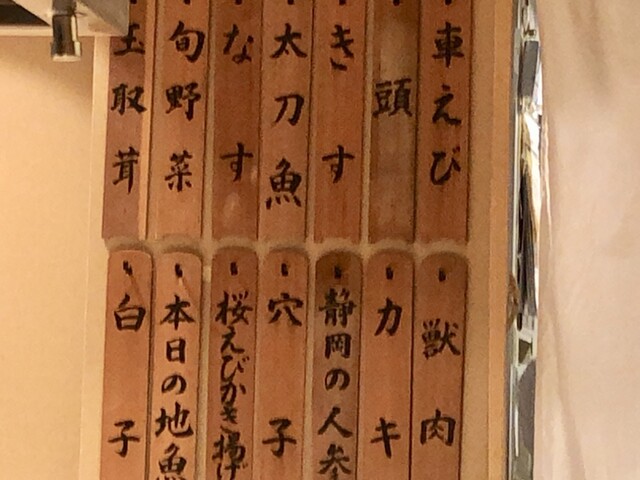 車えび
頭
きす
太刀魚
なす
旬野菜
玉取茸
獣肉
カキ
静岡の人参
穴子
桜えびかき揚げ
本日の地魚
白子